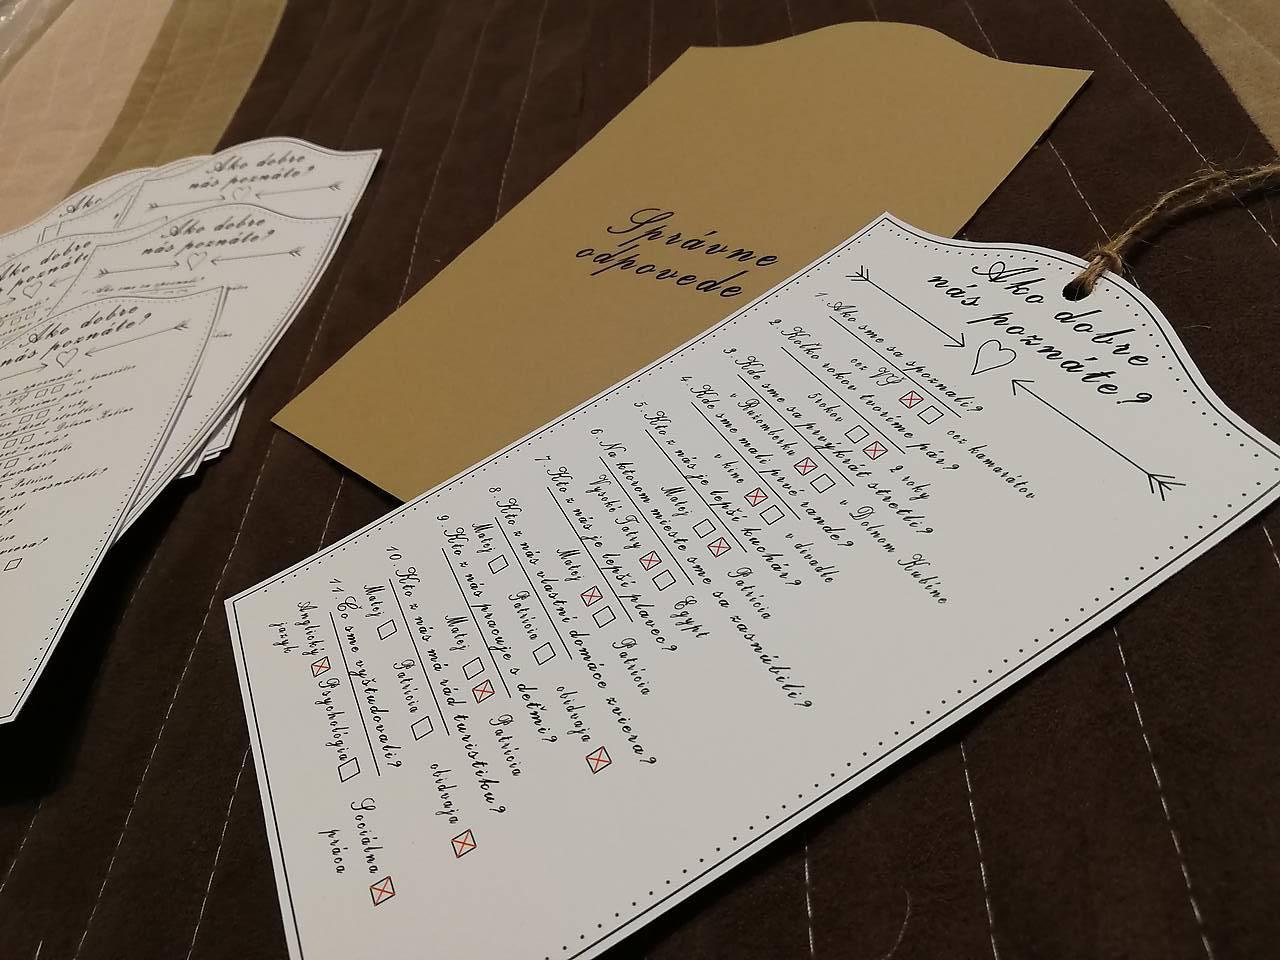 Správne
odpovede
Ako dobre
nás poznáte?
1. Ako sme sa spoznali?
cez VŠ cez kamarátov
2. Koľko rokov tvoríme pár?
5 rokov 2 roky
3. Kde sme sa prvýkrát stretli?
v Ružomberku v Dolnom Kubíne
4. Kde sme mali prvé rande?
v kine v divadle
5. Kto z nás je lepší kuchár?
Matej Patrícia
6. Na ktorom mieste sme sa zasnúbili?
Vysoké Tatry Egypt
7. Kto z nás je lepší plavec?
Matej Patrícia
8. Kto z nás vlastní domáce zviera?
Matej Patrícia obidvaja
9. Kto z nás pracuje s deťmi?
Matej Patrícia
10. Kto z nás má rád turistiku?
Matej Patrícia obidvaja
11. Čo sme vyštudovali?
Anglický Psychológia Sociálna
jazyk práca
Ako dobre
nás poznáte?
Ako dobre
nás poznáte?
Ako dobre
nás poznáte?
Ako dobre
nás poznáte?
Ako